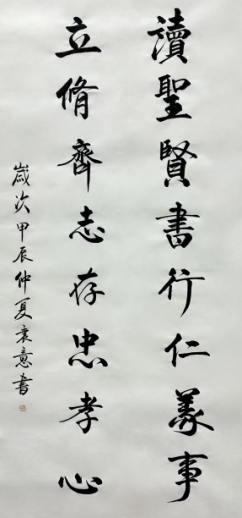 讀聖賢書行仁義事
立脩齊志存忠孝心
歲次甲辰仲夏袁意書